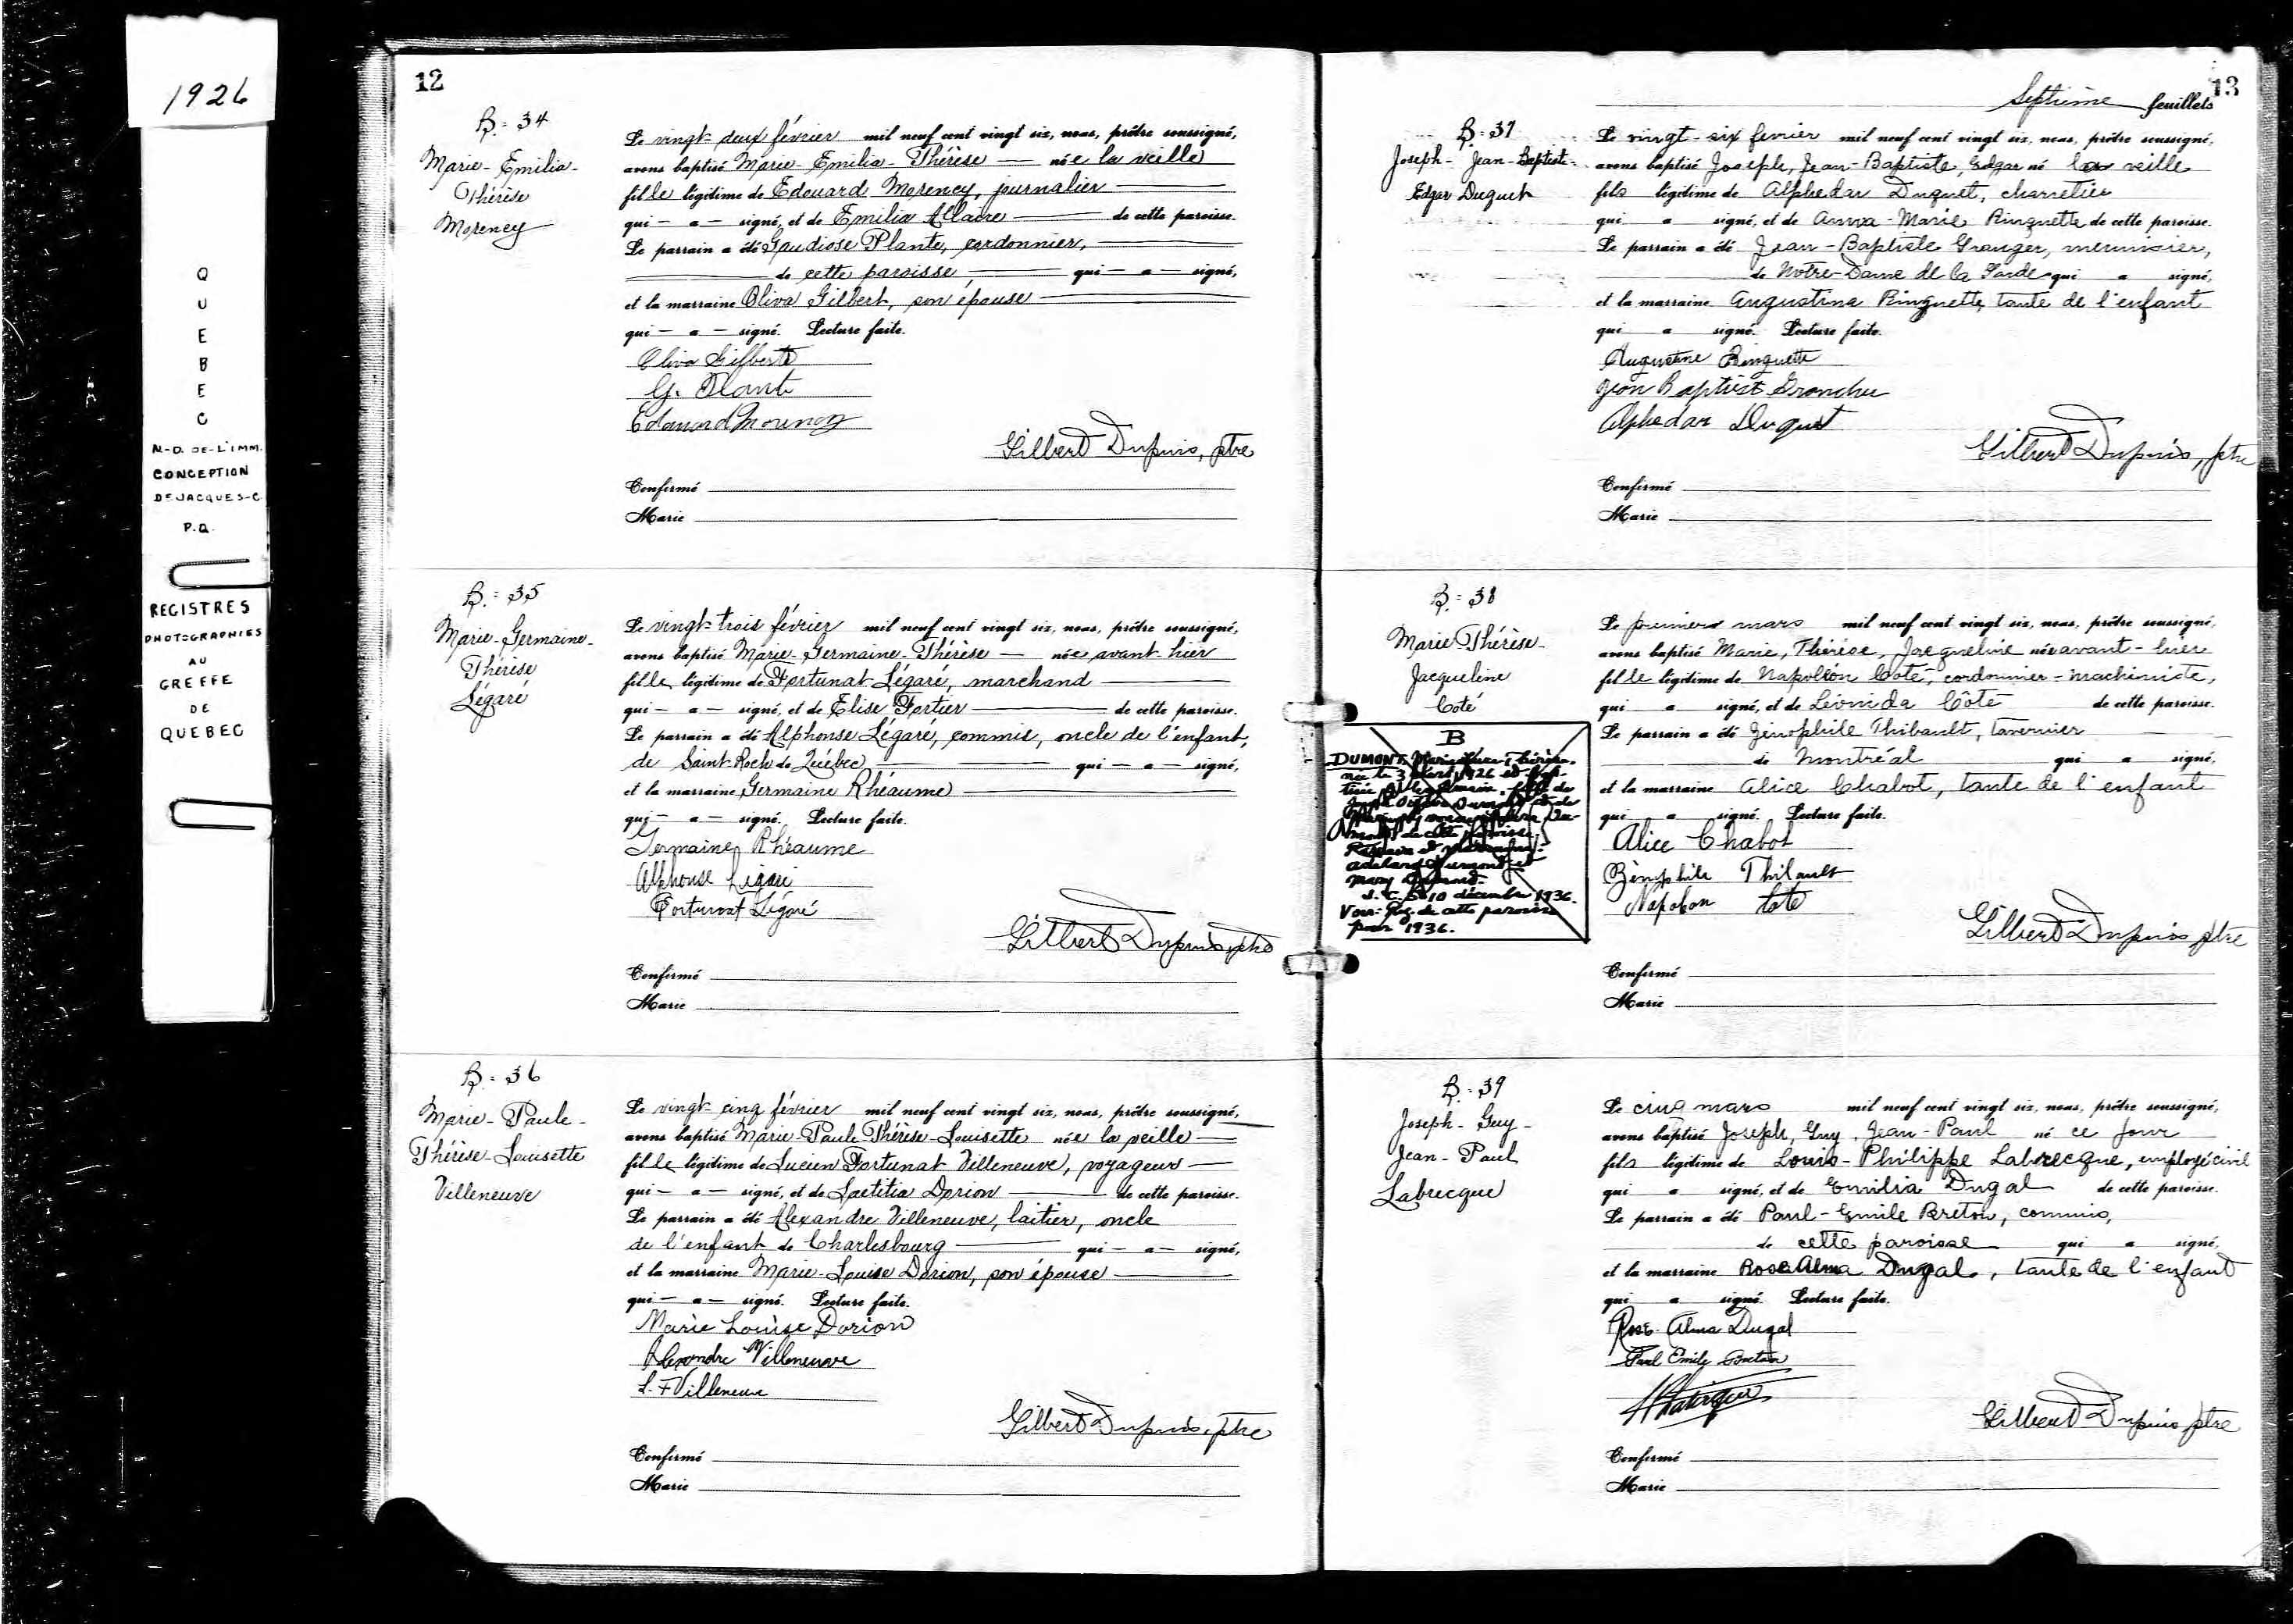 1926
QUEBEC
N.-D. DE-L'IMM.
CONCEPTION
DE JACQUES-C.
P.Q.
REGISTRES
PHOTOGRAPHIES
AU
GREFFE
DE
QUEBEC
12
B. = 34
Marie-Emilia-
Thérèse
Morency
Le vingt-deux février mil neuf cent vingt six, nous, prêtre soussigné,
avons baptisé Marie-Emilia-Thérèse — née la veille
fille légitime de Edouard Morency, journalier —
qui — a — signé, et de Emilia Allaire — de cette paroisse.
Le parrain a été Gaudiose Plante, cordonnier, —
— de cette paroisse, — qui — a — signé,
et la marraine Oliva Gilbert, son épouse —
qui — a — signé. Lecture faite.
Oliva Gilbert
G. Plante
Edouard Morency
Gilbert Dupuis, ptre
Confirmé
Marie
B. = 35
Marie-Germaine-
Thérèse
Légaré
Le vingt-trois février mil neuf cent vingt six, nous, prêtre soussigné,
avons baptisé Marie-Germaine-Thérèse — née avant-hier
fille légitime de Fortunat Légaré, marchand —
qui — a — signé, et de Elise Fortier — de cette paroisse.
Le parrain a été Alphonse Légaré, commis, oncle de l'enfant,
de Saint-Roch de Québec — qui — a — signé,
et la marraine Germaine Rhéaume —
qui — a — signé. Lecture faite.
Germaine Rhéaume
Alphonse Légaré
Fortunat Légaré
Gilbert Dupuis, ptre
Confirmé
Marie
B. = 36
Marie-Paule-
Thérèse-Louisette
Villeneuve
Le vingt-cinq février mil neuf cent vingt six, nous, prêtre soussigné,
avons baptisé Marie-Paule Thérèse-Louisette née la veille —
fille légitime de Lucien Fortunat Villeneuve, voyageur —
qui — a — signé, et de Laetitia Dorion — de cette paroisse.
Le parrain a été Alexandre Villeneuve, laitier, oncle
de l'enfant de Charlesbourg — qui — a — signé,
et la marraine Marie-Louise Dorion, son épouse —
qui — a — signé. Lecture faite.
Marie Louise Dorion
Alexandre Villeneuve
L. F Villeneuve
Gilbert Dupuis, ptre
Confirmé
Marie
13
Septième feuillets
B. = 37
Joseph-Jean-Baptiste-
Edgar Duguet
Le vingt-six fevrier mil neuf cent vingt six, nous, prêtre soussigné,
avons baptisé Joseph, Jean-Baptiste, Edgar né la veille
fils légitime de Alphedar Duguet, charretier
qui a signé, et de Anna-Marie Ringuette de cette paroisse.
Le parrain a été Jean-Baptiste Granger, menuisier,
de Notre-Dame de la Garde qui a signé,
et la marraine Augustina Ringuette, tante de l'enfant
qui a signé. Lecture faite.
Augustine Ringuette
Jean Baptist
Alphedar Duguet
Gilbert Dupuis, ptre
Confirmé
Marie
B. = 38
Marie Thérèse-
Jacqueline
Coté
Le premier mars mil neuf cent vingt six, nous, prêtre soussigné,
avons baptisé Marie, Thérèse, Jacqueline née avant-hier
fille légitime de Napoléon Coté, cordonnier-machiniste,
qui a signé, et de Léonida Côté de cette paroisse.
Le parrain a été Zénophile Thibault, tavernier
de Montréal qui a signé,
et la marraine Alice Chabot, tante de l'enfant
qui a signé. Lecture faite.
Alice Chabot
Zénophile Thibault
Napoleon Cote
Gilbert Dupuis ptre
Confirmé
Marie
B
DUMONT, Marie
née le 3 mars 1926 et bap-
de cette paroisse
Adelard Dumont et
Mary
10 décembre 1936.
Voir: Reg. de cette paroisse
pour 1936.
B. = 39
Joseph-Guy-
Jean-Paul
Labrecque
Le cinq mars mil neuf cent vingt six, nous, prêtre soussigné,
avons baptisé Joseph, Guy, Jean-Paul né ce jour
fils légitime de Louis-Philippe Labrecque, employé civil
qui a signé, et de Emilia Dugal de cette paroisse.
Le parrain a été Paul-Emile Breton, commis,
de cette paroisse qui a signé,
et la marraine Rose Alma Dugal, tante de l'enfant
qui a signé. Lecture faite.
Rose-Alma Dugal
Paul Emile Breton
Gilbert Dupuis ptre
Confirmé
Marie